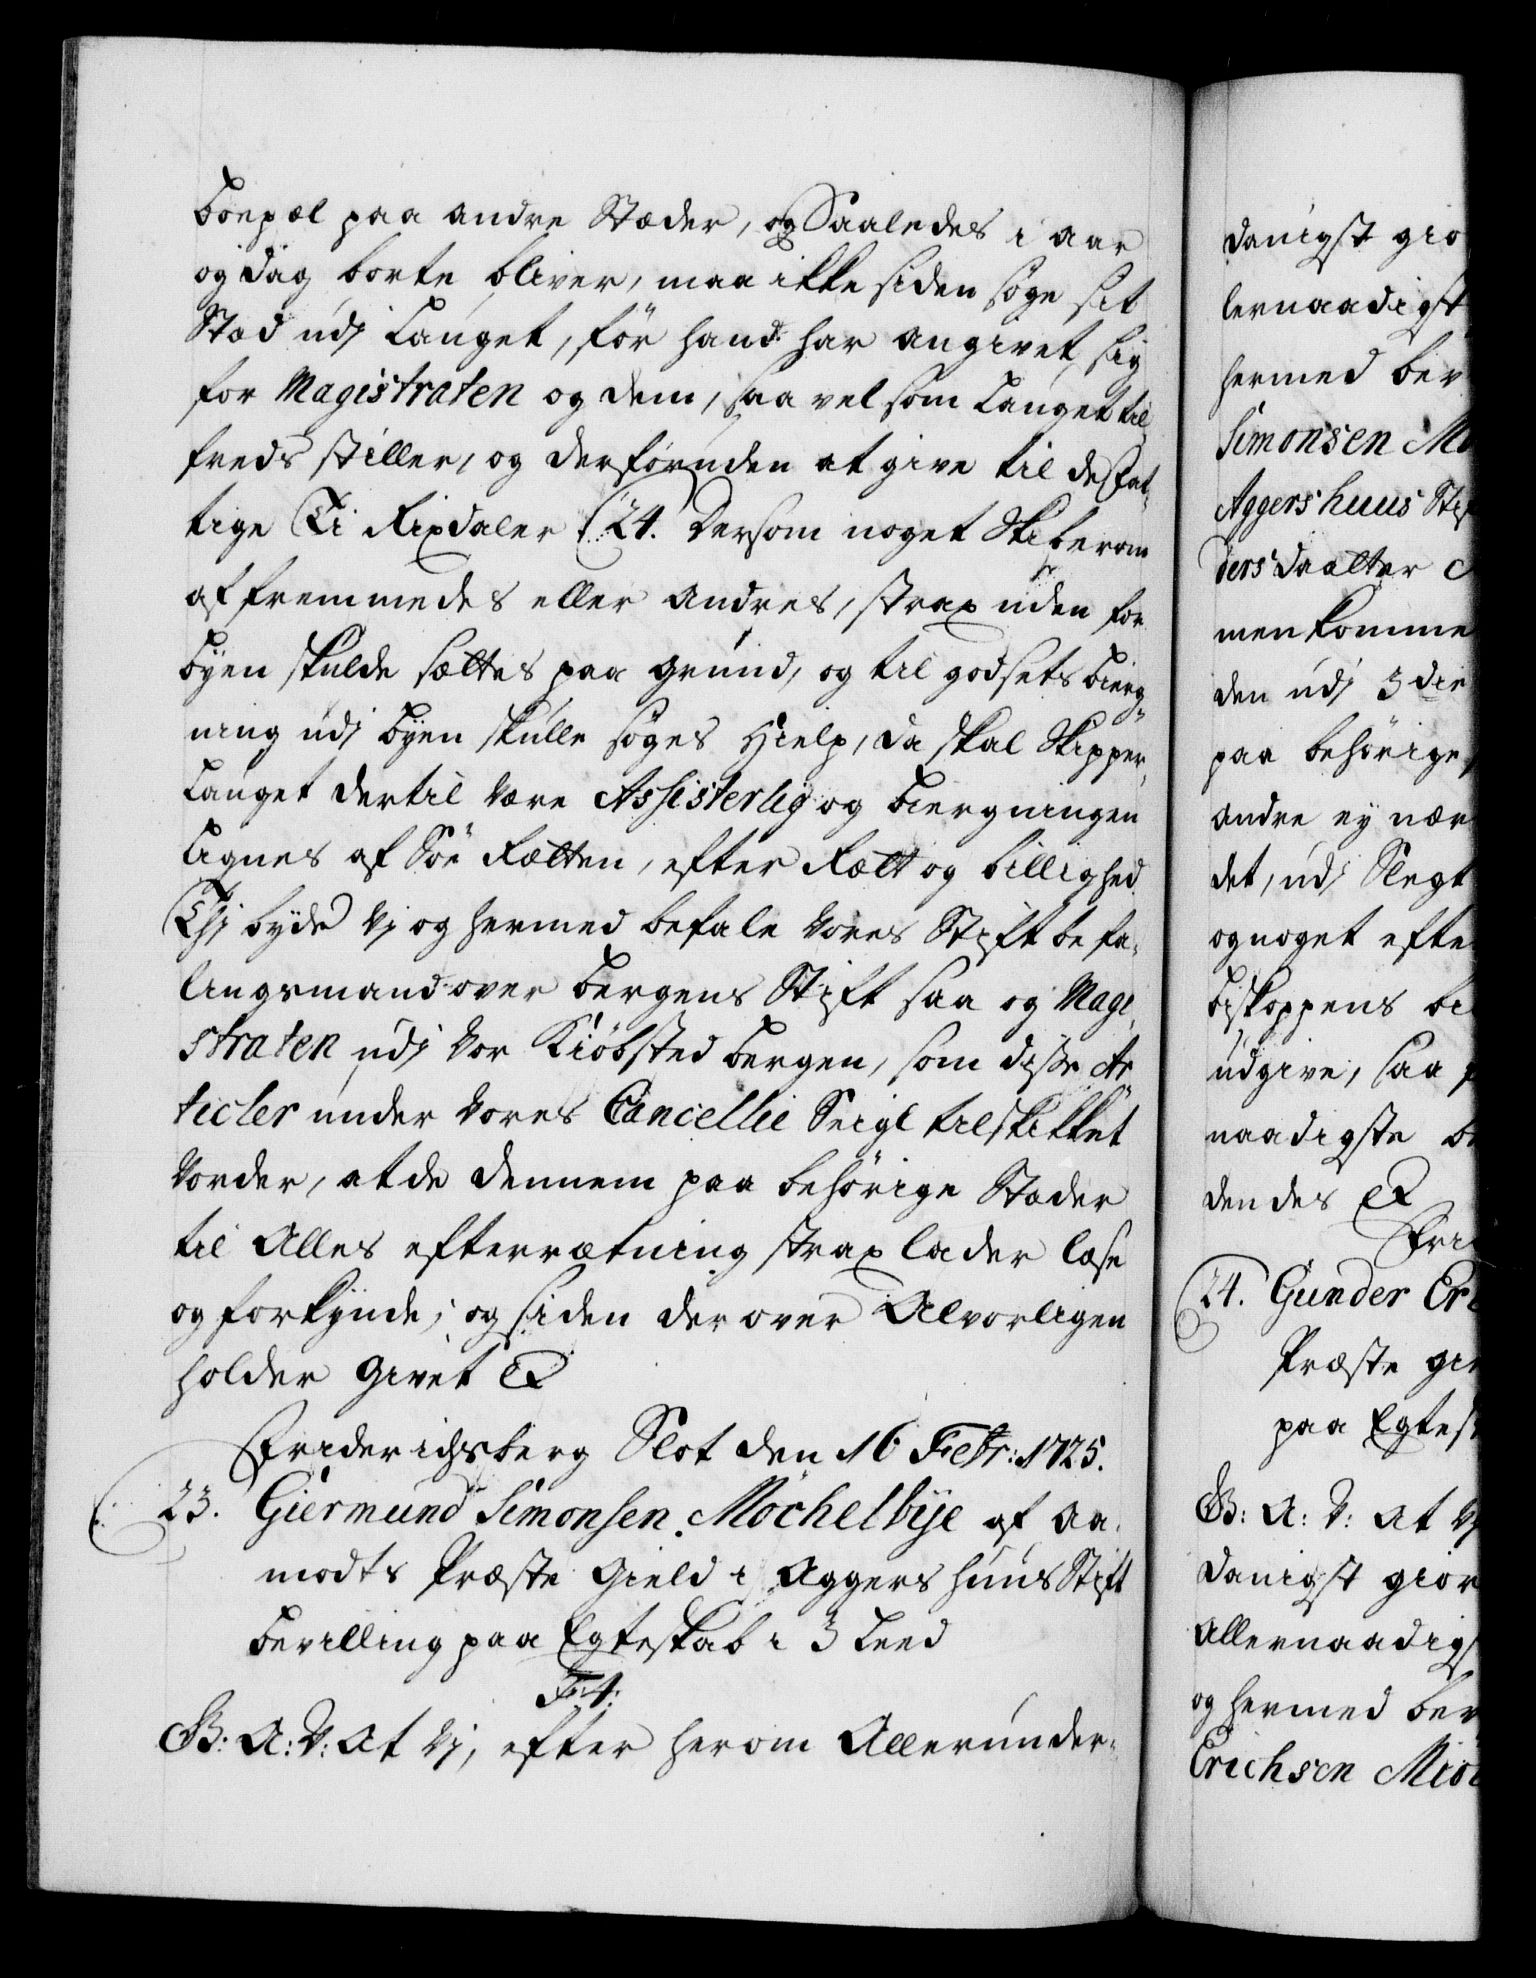 Boepæl paa andre Stæder, og Saaledes i aar
og dag borte bliver, maa ikke siden søge sit
Stæd udj Lauget, før hand har angivet sig
for Magistraten og dem, saa vel som Lauget til
freds stiller, og derforuden at give til de fat¬
tige Ti Rixdaler /:24. Dersom noget Skiberom
af fremmedes eller andres, strax uden for
Byen skulde sættes paa grund, og til godsets Bierg¬
ning udj Byen skulle søges Hielp, da skal Skipper
Lauget dertil være Assisterlig og biergningen
Lignes af Søe Rætten, efter Rætt og billighed
Thj byde Vj og hermed befale Vores Stiftbefa¬
lingsmand over Bergens Stift saa og Magi
straten udj Vor Kiøbsted Bergen, som disse Ar
ticler under Vores Cancellie Seigl tilskikket
Vorder, at de dennem paa behørige Stæder
til Alles efterrætning strax lader læse
og forkynde; og siden der over Alvorligen
holder Givet &
Friderichsberg Slot den 16 Febr: 1725.
23. Giermund Simonsen Möchelbÿe af Aa¬
modts Præste Gield i Aggershuus Stift
Bevilling paa Egteskab i 3 Leed
F: 4:
G: A: V: At Vj, efter herom Allerunder¬
danigst gio
lernaadigst
hermed bev
Simonsen Mö
Aggershuus Stif
ders daatter
men komme
den udj 3die
paa behørige
andre ey nær
det, udj Slegt
og noget efte
Biskoppens be
udgive, saa
naadigste be
dendes &
Fri
24. Gunder Eri
Præste gi
paa Egtesk
G: A: V: At Vj
danigst gior
Allernaadigs
og hermed bev
Erichsen Mio